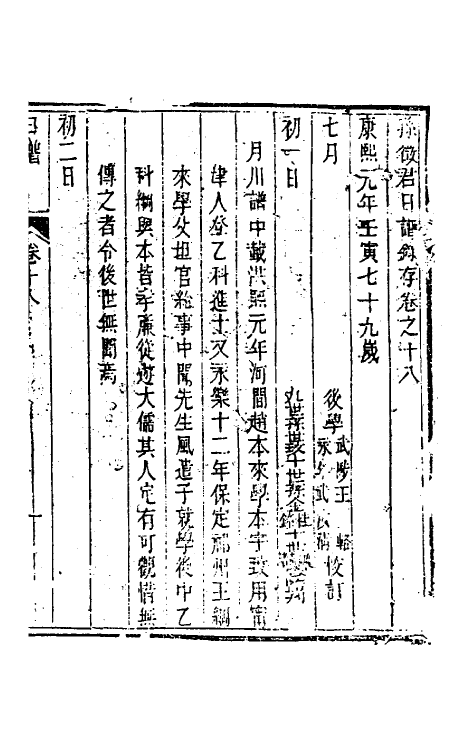 孫徵君日譜錄存卷之十八
康熙元年壬寅七十九歲
七月
後學
武陟王
校訂
初一日
月川譜中載洪熙元年河間趙本來學本字致用甯
津人登乙科進士又永樂十二年保定祁州王綱
來學父坦官給事中聞先生風遣子就學後中乙
科綱與本皆孝廉從遊大儒其人定有可觀惜無
傳之者令後世無聞焉
初二日
日譜
卷十八